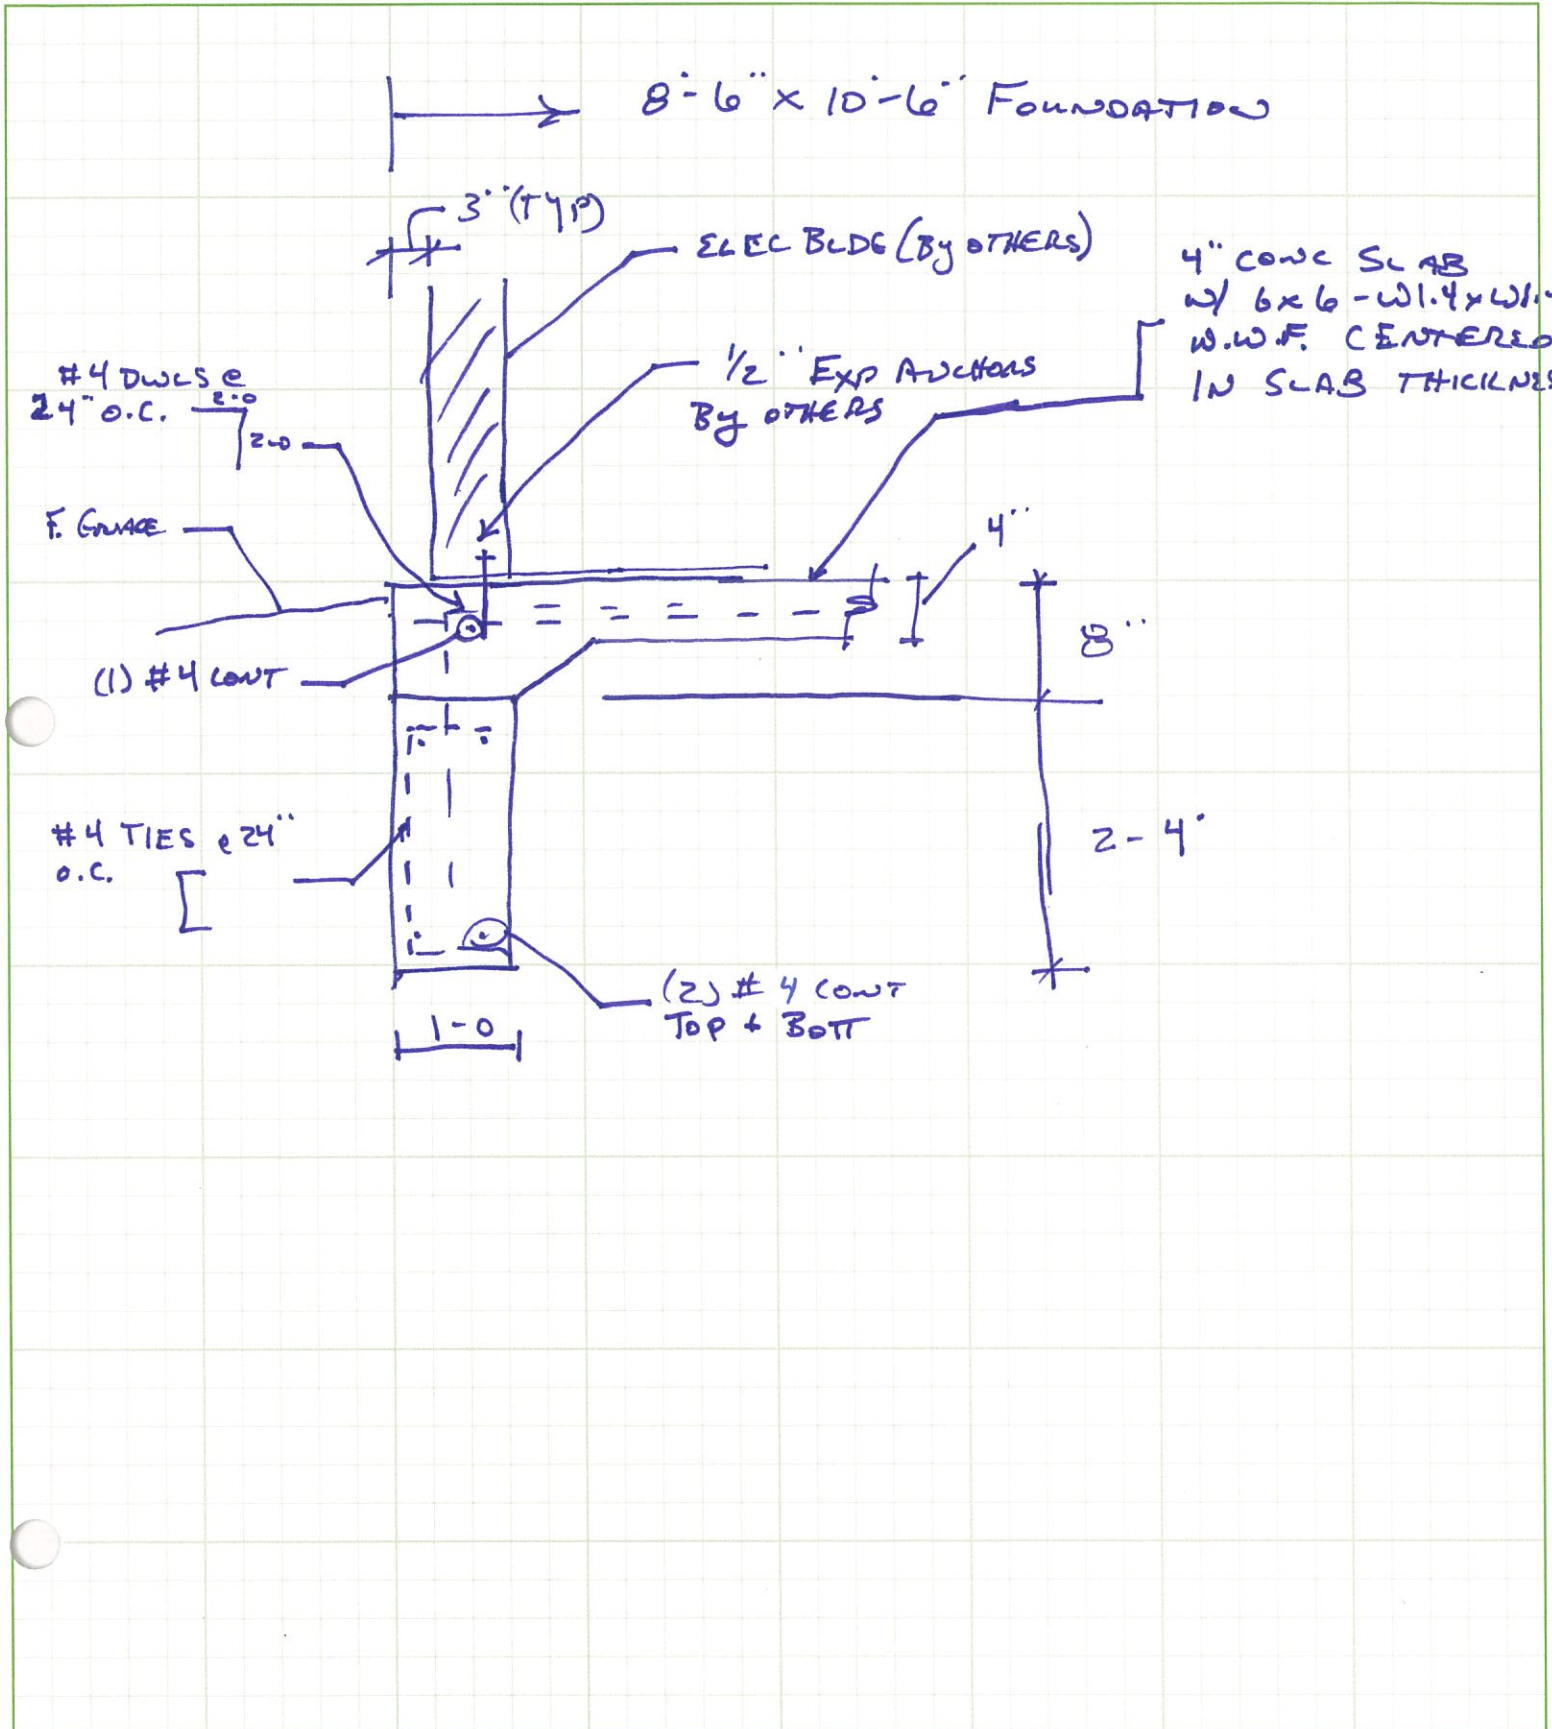 8'-6" x 10'-6" FOUNDATION
3" (TYP)
ELEC BLDG (By OTHERS)
4" CONC SLAB
w/ 6x6 - W1.4 x W1.
W.W.F. CENTERED
IN SLAB THICKNES
1/2" EXP ANCHORS
By OTHERS
#4 DWLS @
24" O.C.
2-0
2-0
F. GRADE
4"
(1) #4 CONT
8"
#4 TIES @ 24"
O.C.
2-4"
(2) #4 CONT
TOP + BOTT
1-0